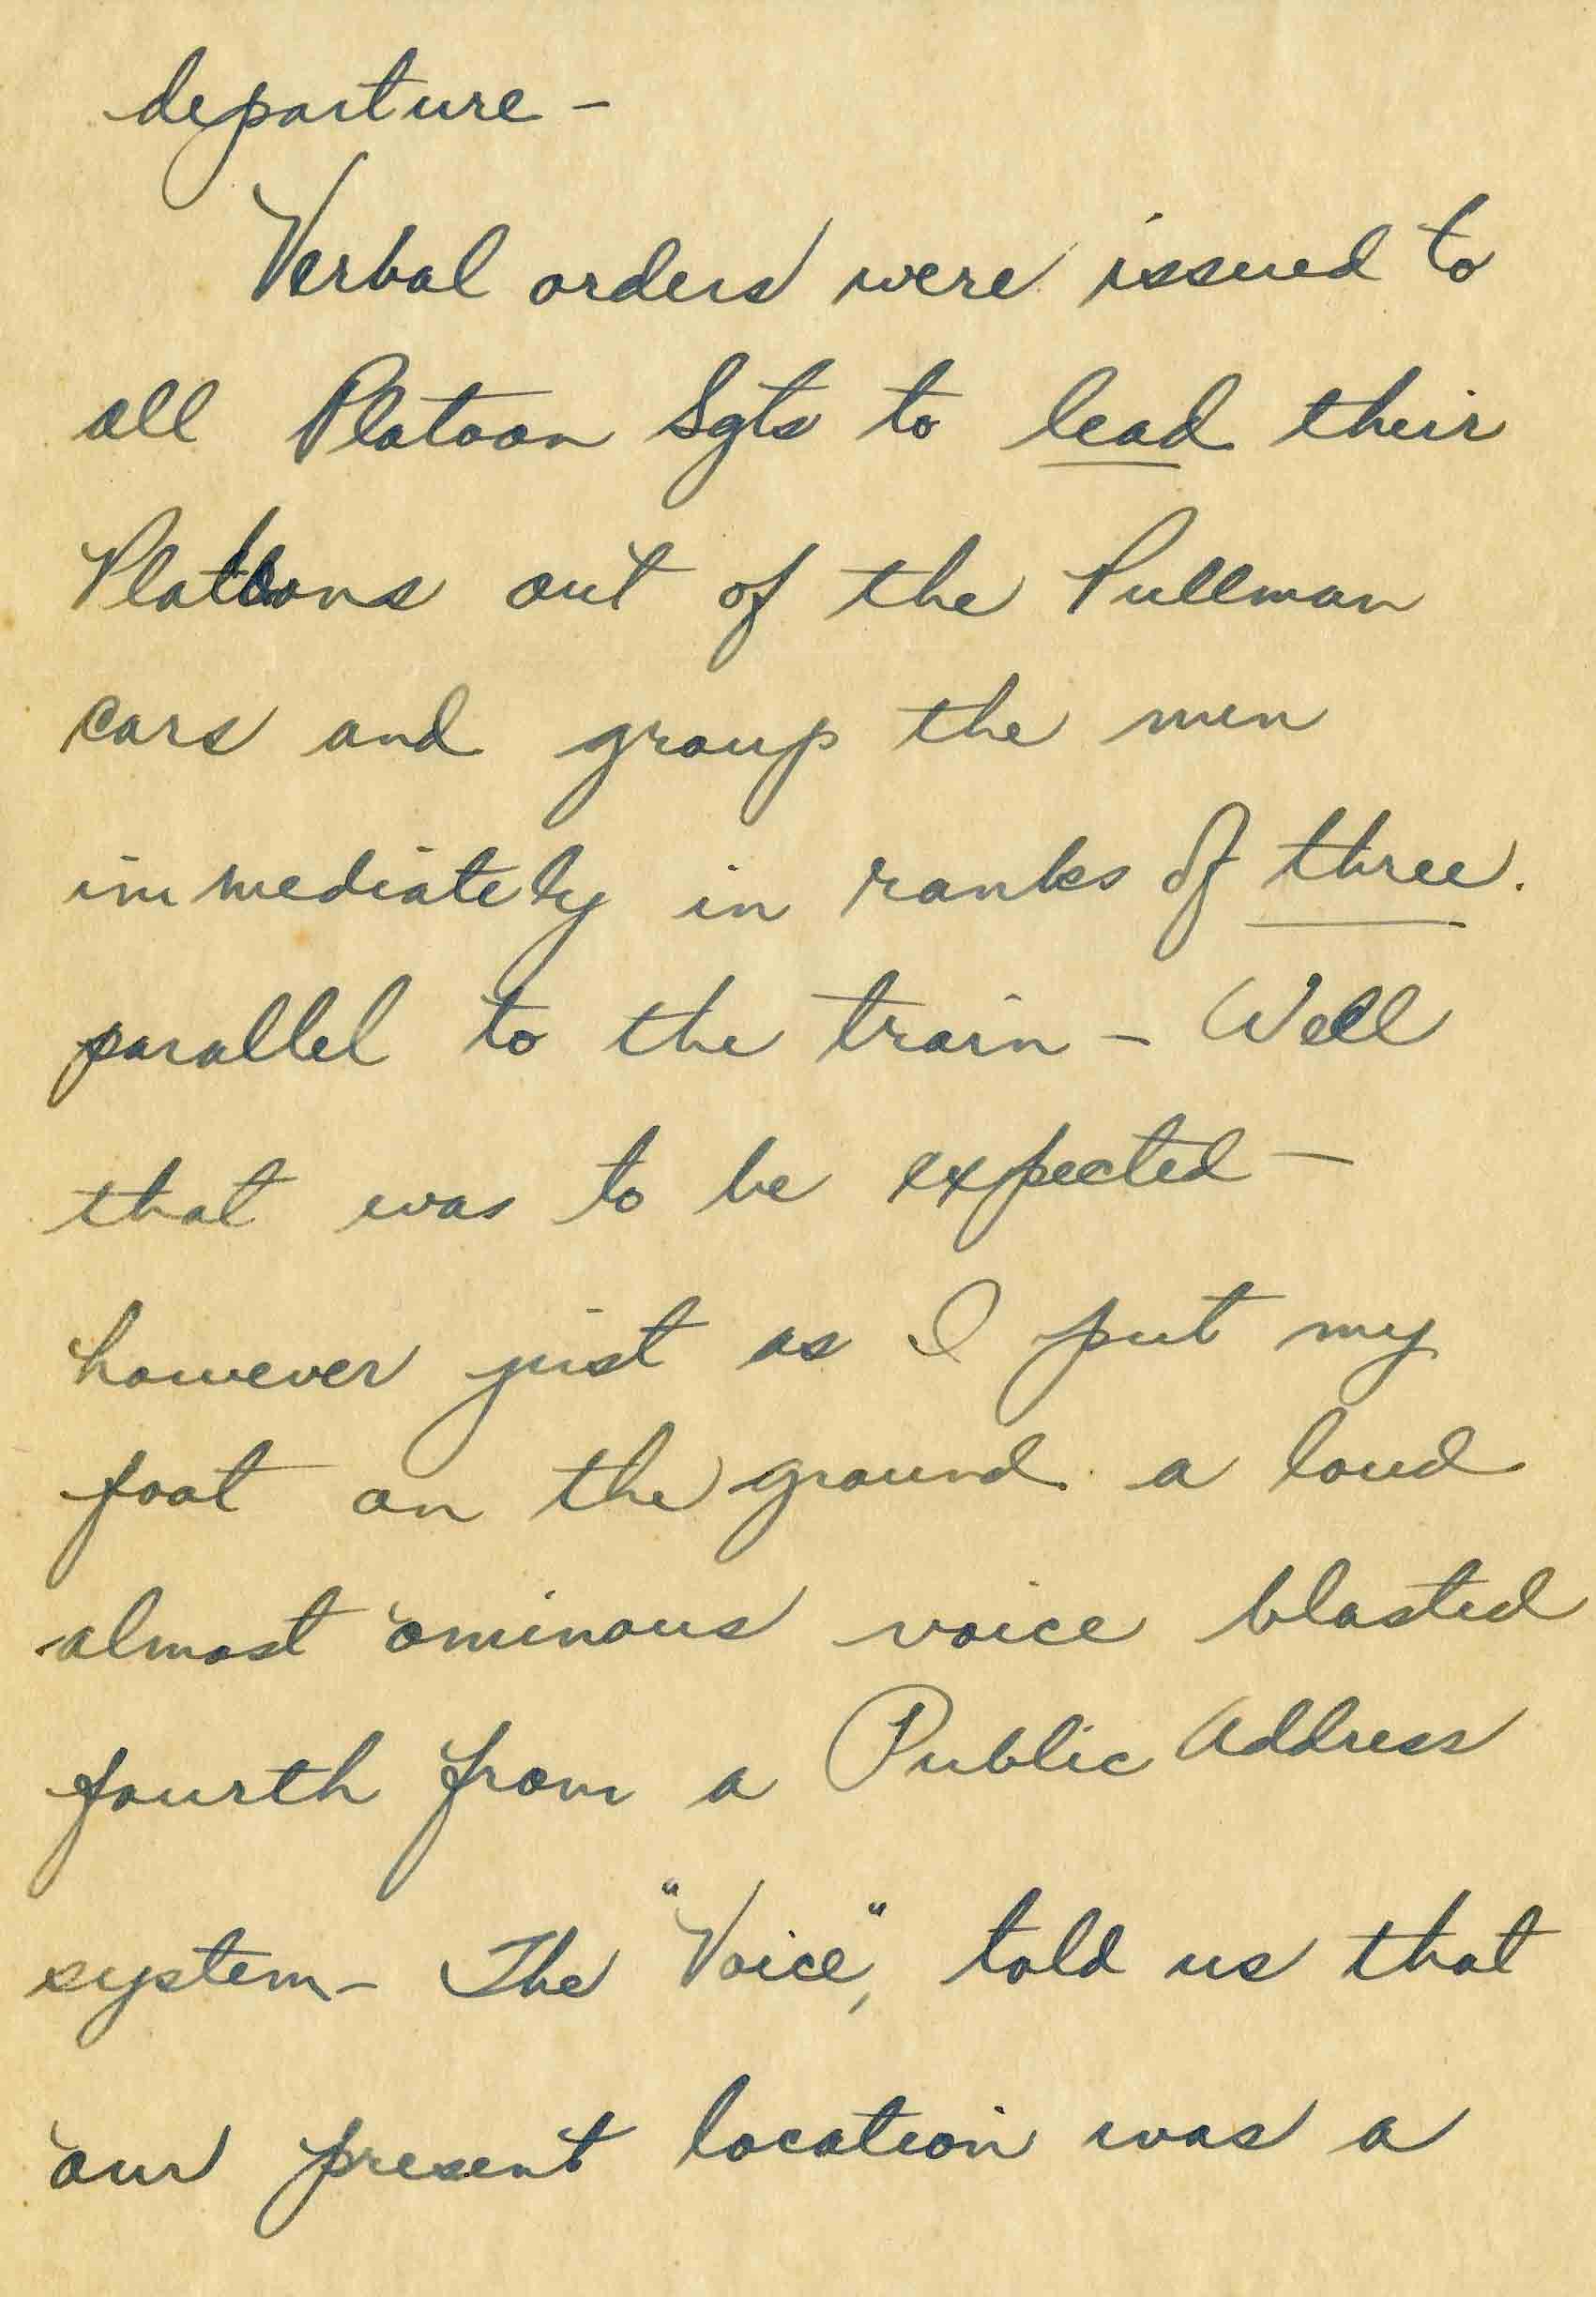 departure –
Verbal orders were issued to
all Platoon Sgts to lead their
Platoons out of the Pullman
cars and group the men
immediately in ranks of three.
parallel to the train – Well
that was to be expected –
however just as I put my
foot on the ground a loud
almost ominous voice blasted
fourth from a Public Address
system – The "Voice", told us that
our present location was a